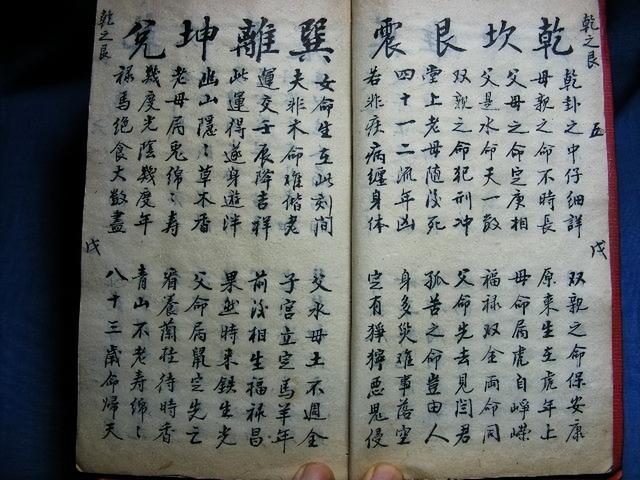 乾之艮
五
戊
乾坎艮震
乾卦之中仔細詳
母親之命不時長
父母之命定庚相
父是水命天一數
双親之命犯刑冲
堂上老母隨後死
四十一二流年凶
若非疾病纏身体
双親之命保安康
原來生在虎年上
母命屬虎自崢嶸
福禄双全両命同
父命先去見閻君
孤苦之命豈由人
身多災难事落空
定有猙獰惡鬼侵
巽離坤兌
女命生在此刻间
夫非木命难偕老
運交壬辰降吉祥
此運得遂身遊泮
幽山隱〻草木香
老母屬兎綿〻寿
幾度光陰幾度年
禄馬絶食大数盡
父水母土不週全
子宫立定馬羊年
前後相生福禄昌
果然時来鉄生光
父命屬鼠定先亡
椿養蘭桂待時香
青山不老寿綿〻
八十三歲命歸天
乾之艮
戊